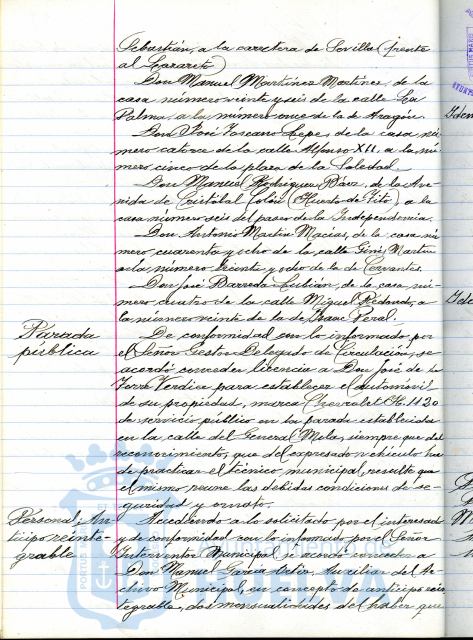 Sebastián, a la carretera de Sevilla (frente
al Lazareto)
Don Manuel Martínez Martínez, de la
casa número veinte y seis de la calle La
Palma, a la número once de la de Aragón.
Don José Toscano Lepe, de la casa nú-
mero catorce de la calle Alfonso XII, a la nú-
mero cinco de la plaza de la Soledad.
Don Manuel Rodríguez Báez, de la Ave-
nida de Cristóbal Colón (Huerto de Tito), a la
casa número seis del paseo de la Independencia.
Don Antonio Martín Macías, de la casa nú-
mero cuarenta y ocho de la calle Ginés Martín
a la número veinte y ocho de la de Cervantes.
Don José Barreda Lubián, de la casa nú-
mero cuatro de la calle Miguel Redondo, a
la número veinte de la de Isaac Peral.
Parada
pública
De conformidad con lo informado por
el Señor Gestor Delegado de Circulación, se
acordó conceder licencia a Don José de la
Torre Verdier para establecer el automóvil
de su propiedad, marca Chevrolet H. 1120
de servicio público en la parada establecida
en la calle del General Mola, siempre que del
reconocimiento, que del expresado vehículo ha
de practicar el técnico municipal, resulte que
el mismo reune las debidas condiciones de se-
guridad y ornato.
Personal: An-
ticipo reinte-
grable
Accediendo a lo solicitado por el interesado
y de conformidad con lo informado por el Señor
Interventor Municipal se acordó conceder a
Don Manuel García, Auxiliar del Ar-
chivo Municipal, en concepto de anticipo rein-
tegrable, dos mensualidades del haber que